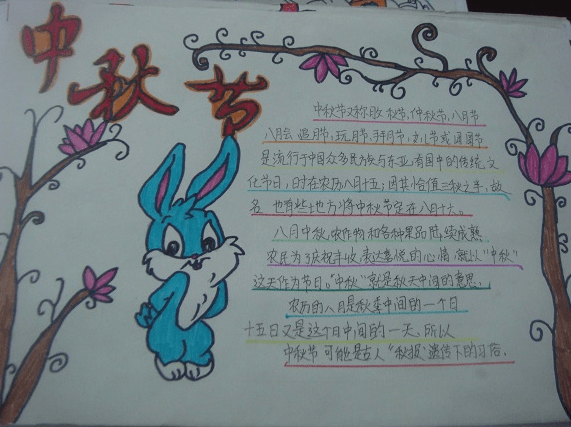 中秋节
中秋节又称月夕、秋节、仲秋节、八月节
八月会、追月节、玩月节、拜月节、女儿节或团圆节
是流行于中国众多民族与东亚诸国中的传统文
化节日,时在农历八月十五;因其恰值三秋之半,故
名,也有些地方将中秋节定在八月十六。
八月中秋,农作物和各种果品陆续成熟
农民为了庆祝丰收,表达喜悦的心情,就以“中秋”
这天作为节日。“中秋”就是秋天中间的意思,
农历的八月是秋季中间的一个月
十五日又是这个月中间的一天,所以
中秋节可能是古人“秋报”遗传下的习俗.